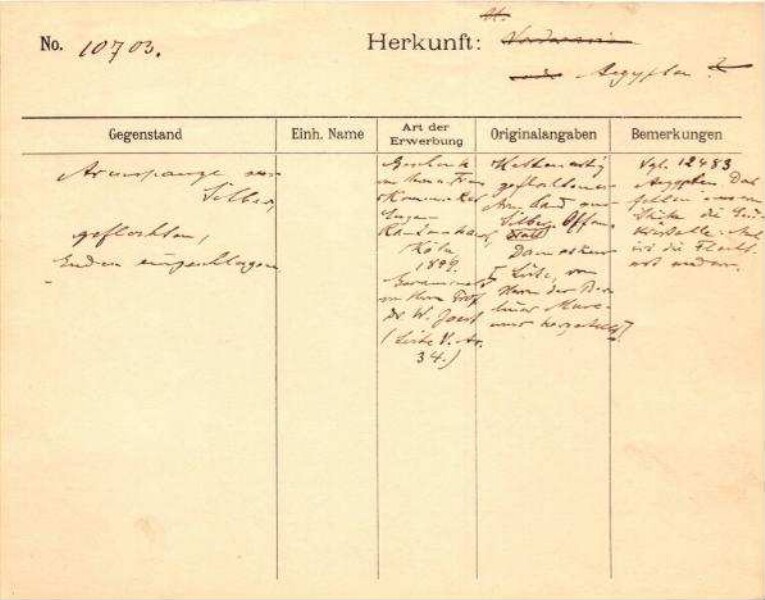 No. 10703.
Herkunft: Vorderasien
oder Aegypten ?
Gegenstand
Einh. Name
Art der Erwerbung
Originalangaben
Bemerkungen
Armspange aus
Silber,
geflochten,
Enden eingeschlagen
Geschenk
von Frau
Kommerz.
Eugen
Rautenstrauch,
Köln
1899.
Gesammelt
von Herrn Prof.
Dr. W. Joest
(Liste V. Nr.
34.)
Kettenartig
geflochtenes
Armband aus
Silber. Offen.
Damaskus
Liste, von
Herrn der Ber-
liner Muse-
Vgl. 12483
Aegypten. Dort
fehlen
Stücke die
ist die Flecht-
art anders.